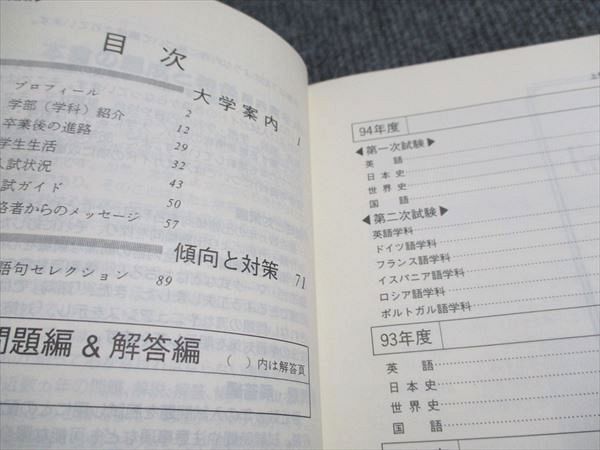 目次
大学案内 1
プロフィール 2
学部(学科)紹介 12
卒業後の進路 29
学生生活 32
入試状況 43
入試ガイド 50
合格者からのメッセージ 57
傾向と対策 71
語句セレクション 89
問題編 & 解答編 ( )内は解答頁
94年度
◀第一次試験▶
英語
日本史
世界史
国語
◀第二次試験▶
英語学科
ドイツ語学科
フランス語学科
イスパニア語学科
ロシア語学科
ポルトガル語学科
93年度
英語
日本史
世界史
国語